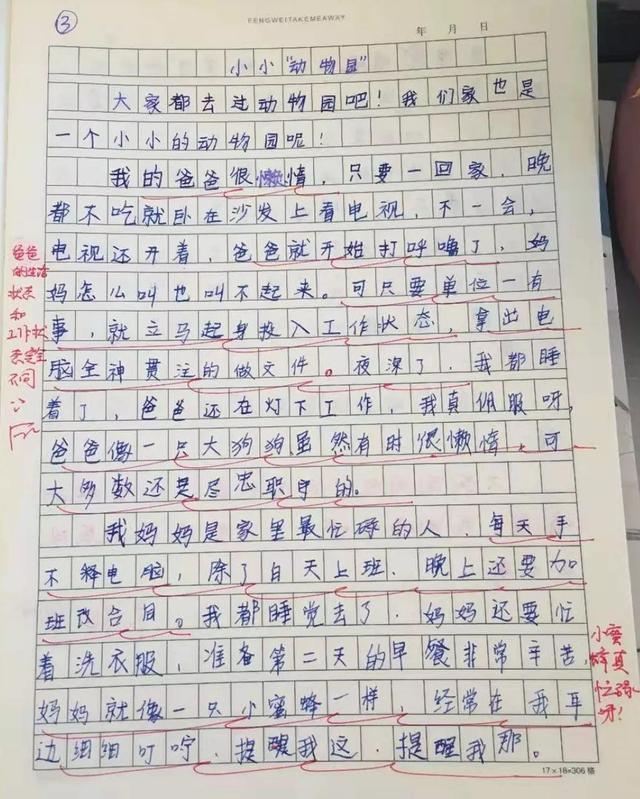 ③
FENGWEITAKEMEAWAY
年 月 日
小小“动物园”
大家都去过动物园吧！我们家也是
一个小小的动物园呢！
我的爸爸很懒惰，只要一回家，晚
都不吃就卧在沙发上看电视，不一会，
电视还开着，爸爸就开始打呼噜了，妈
妈怎么叫也叫不起来。可只要单位一有
事，就立马起身投入工作状态，拿出电
脑全神贯注的做文件。夜深了，我都睡
着了，爸爸还在灯下工作，我真佩服呀，
爸爸像一只大狗狗虽然有时很懒惰，可
大多数还是尽忠职守的。
我妈妈是家里最忙碌的人，每天手
不释电脑，除了白天上班，晚上还要加
班改合同。我都睡觉去了，妈妈还要忙
着洗衣服，准备第二天的早餐非常辛苦，
妈妈就像一只小蜜蜂一样，经常在我耳
边细细叮咛，提醒我这，提醒我那。
爸爸
的生活
状态
和
工作状
态完全
不同
小蜜
蜂真
忙碌
呀！
17×18=306格